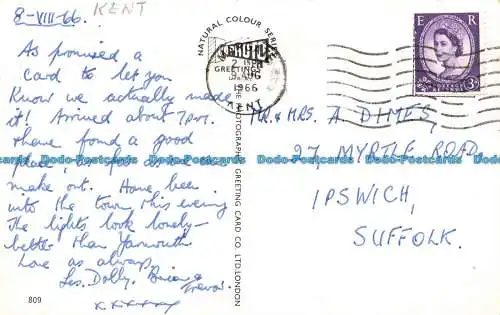 8-VIII-66. KENT
As promised a
card to let you
know we actually made
it! Arrived about 7pm.
& have found a good
place, as far as we can
make out. Have been
into the town this evening
The lights look lovely-
better than Yarmouth
Love as always,
Les. Dolly. Brian &
Trevor.
xxxxxx
809
NATURAL COLOUR SERIES
GREETING CARD CO. LTD. LONDON
1966
KENT
E R
POSTAGE REVENUE
3D
MR. & MRS. A. DIMES,
27 MYRTLE ROAD
IPSWICH,
SUFFOLK.
Dodo-Postcards Dodo-Postcards Dodo-Postcards Dodo-Postcards Dodo-Postcards